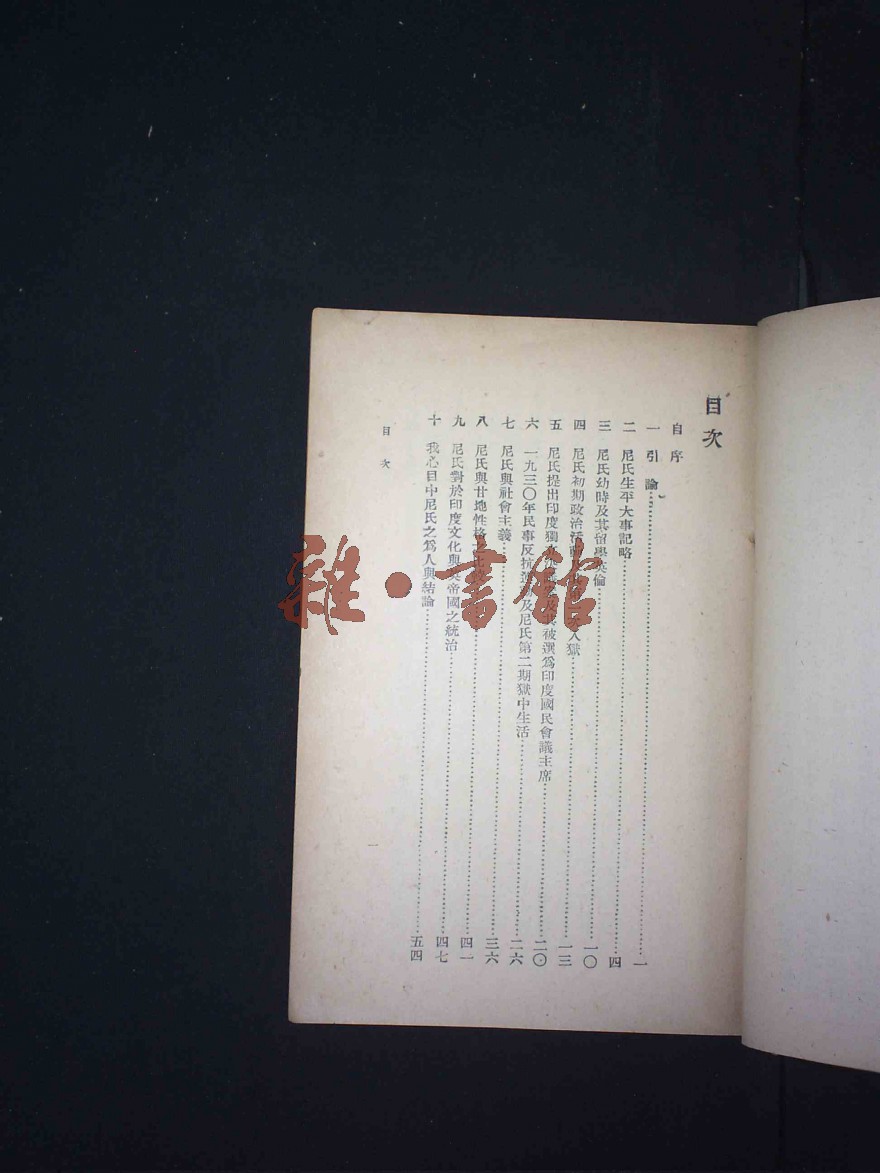 目次
自序
一 引論 一
二 尼氏生平大事記略 四
三 尼氏幼時及其留學英倫 一〇
四 尼氏初期政治活 入獄 一三
五 尼氏提出印度獨 及其被選為印度國民會議主席 二〇
六 一九三〇年民事反抗運 及尼氏第二期獄中生活 二六
七 尼氏與社會主義 三六
八 尼氏與甘地性格 四一
九 尼氏對於印度文化與英帝國之統治 四七
十 我心目中尼氏之為人與結論 五四
目次
一
雜·書館